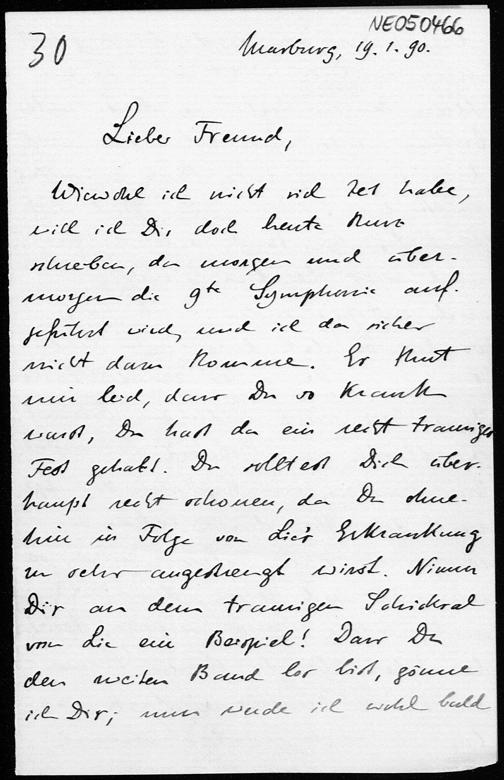 NE050466
30
Marburg, 19.1.90.
Lieber Freund,
Wiewohl ich nicht viel Zeit habe,
will ich Dir doch heute kurz
schreiben, da morgen und über-
morgen die 9te Symphonie auf-
geführt wird, und ich da sicher
nicht dazu komme. Es thut
mir leid, dass Du so krank
warst, Du hast da ein recht trauriges
Fest gehabt. Du solltest Dich über-
haupt recht schonen, da Du ohne-
hin in Folge von Lie's Erkrankung
zu sehr angestrengt wirst. Nimm
Dir an dem traurigen Schicksal
von Lie ein Beispiel! Dass Du
den zweiten Band los bist, gönne
ich Dir; nun werde ich wohl bald